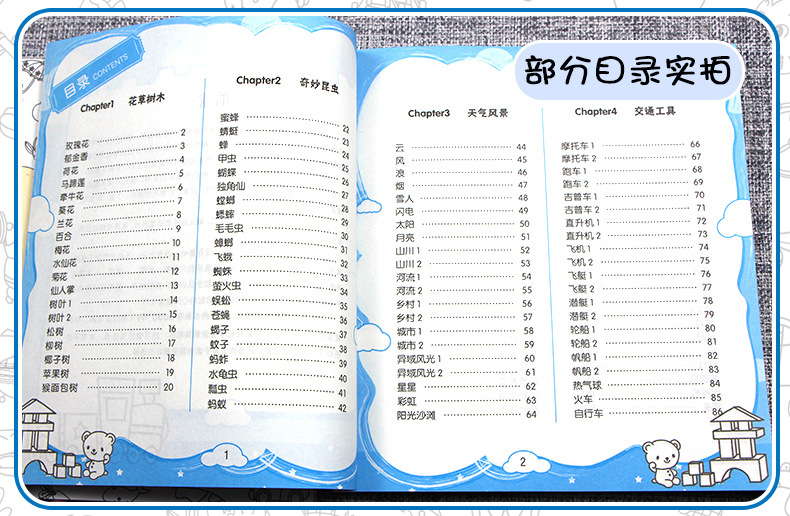 部分目录实拍
目录 CONTENTS
Chapter1 花草树木
玫瑰花 2
郁金香 3
荷花 4
马蹄莲 5
牵牛花 6
葵花 7
兰花 8
百合 9
梅花 10
水仙花 11
菊花 12
仙人掌 13
树叶1 14
树叶2 15
松树 16
柳树 17
椰子树 18
苹果树 19
猴面包树 20
Chapter2 奇妙昆虫
蜜蜂 22
蜻蜓 23
蜂 24
甲虫 25
蝴蝶 26
独角仙 27
螳螂 28
蟋蟀 29
毛毛虫 30
蟑螂 31
飞蛾 32
蜘蛛 33
萤火虫 34
蜈蚣 35
苍蝇 36
蝎子 37
蚊子 38
蚂蚱 39
水黾虫 40
瓢虫 41
蚂蚁 42
1
Chapter3 天气风景
云 44
风 45
浪 46
烟 47
雪人 48
闪电 49
太阳 50
月亮 51
山川1 52
山川2 53
河流1 54
河流2 55
乡村1 56
乡村2 57
城市1 58
城市2 59
异域风光1 60
异域风光2 61
星星 62
彩虹 63
阳光沙滩 64
Chapter4 交通工具
摩托车1 66
摩托车2 67
跑车1 68
跑车2 69
吉普车1 70
吉普车2 71
直升机1 72
直升机2 73
飞机1 74
飞机2 75
飞艇1 76
飞艇2 77
潜艇1 78
潜艇2 79
轮船1 80
轮船2 81
帆船1 82
帆船2 83
热气球 84
火车 85
自行车 86
2